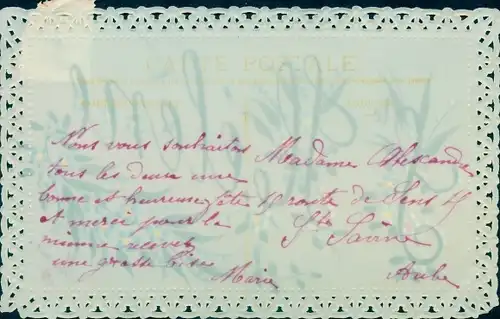 CARTE POSTALE
Nous vous souhaitons
tous les deux une
bonne et heureuse fête
et merci pour la
mienne recevez
une grosse bise
Marie
Madame Alexandre
15 route de Sens 15
Ste Savine
Aube